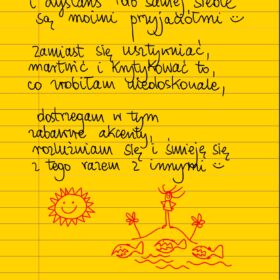 i dystans do samej siebie
są moimi przyjaciółmi
zamiast się usztywniać,
martwić i krytykować to,
co zrobiłam niedoskonale,
dostrzegam w tym
zabawne akcenty,
rozluźniam się i śmieję się
z tego razem z innymi